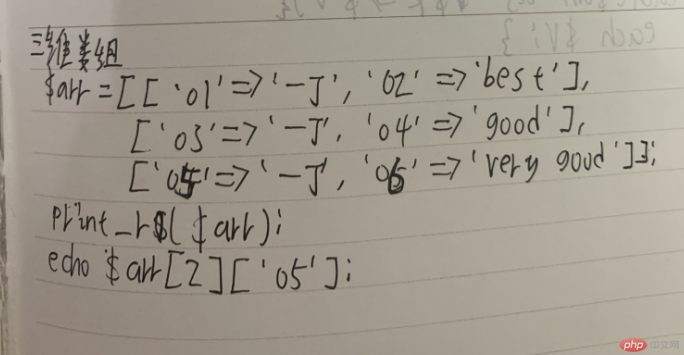 三维数组
$arr = [['01' => '一丁', '02' => 'best'],
['03' => '一丁', '04' => 'good'],
['05' => '一丁', '06' => 'very good']];
print_r($arr);
echo $arr[2]['05'];
each $v; }
php